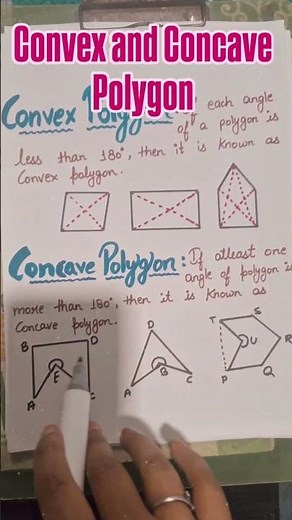 Convex and Concave
Polygon
Convex Polygon : If each angle
of a polygon is
less than 180°, then it is known as
Convex polygon.
Concave Polygon : If atleast one
angle of polygon is
more than 180°, then it is known as
Concave polygon.
B D
E
A C
D
B
A C
T S
U R
P Q